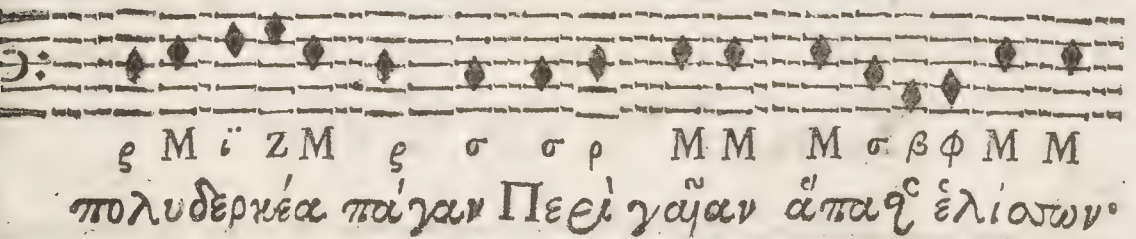 ϱ M ϊ Z M ϱ σ σ ρ M M M σ β φ M M
πολυδερκέα πάγαν Περὶ γαῖαν ἑλίσσων·